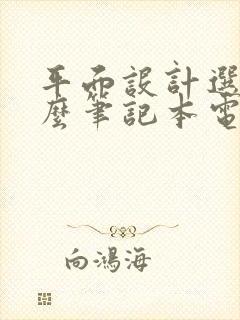 平面設計選
麼筆記本電
向鴻海